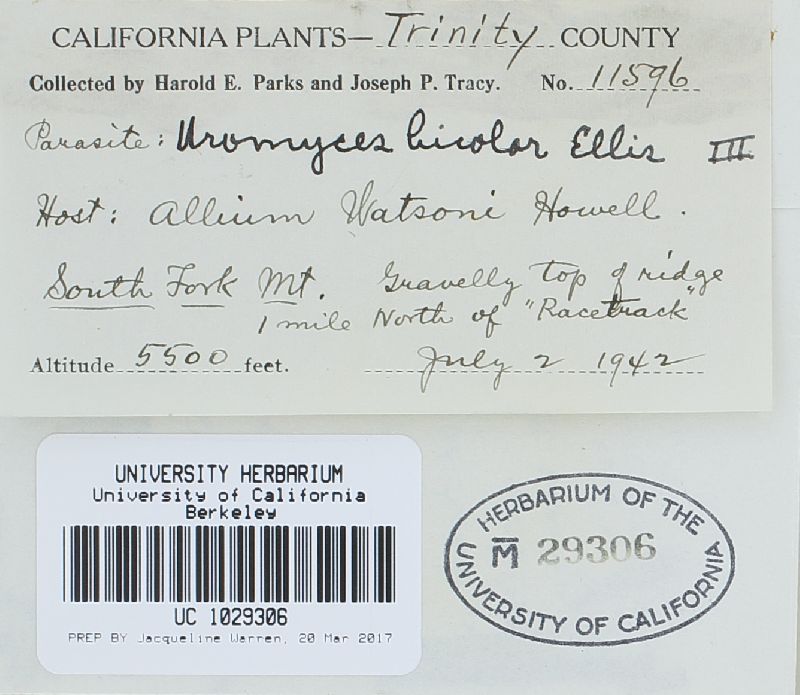 CALIFORNIA PLANTS— Trinity COUNTY
Collected by Harold E. Parks and Joseph P. Tracy. No. 11596
Parasite: Uromyces bicolor Ellis III
Host: Allium Watsoni Howell.
South Fork Mt. Gravelly top of ridge
1 mile North of "Racetrack"
Altitude 5500 feet. July 2 1942
UNIVERSITY HERBARIUM
University of California
Berkeley
UC 1029306
PREP BY Jacqueline Warren, 20 Mar 2017
HERBARIUM OF THE
M 29306
UNIVERSITY OF CALIFORNIA